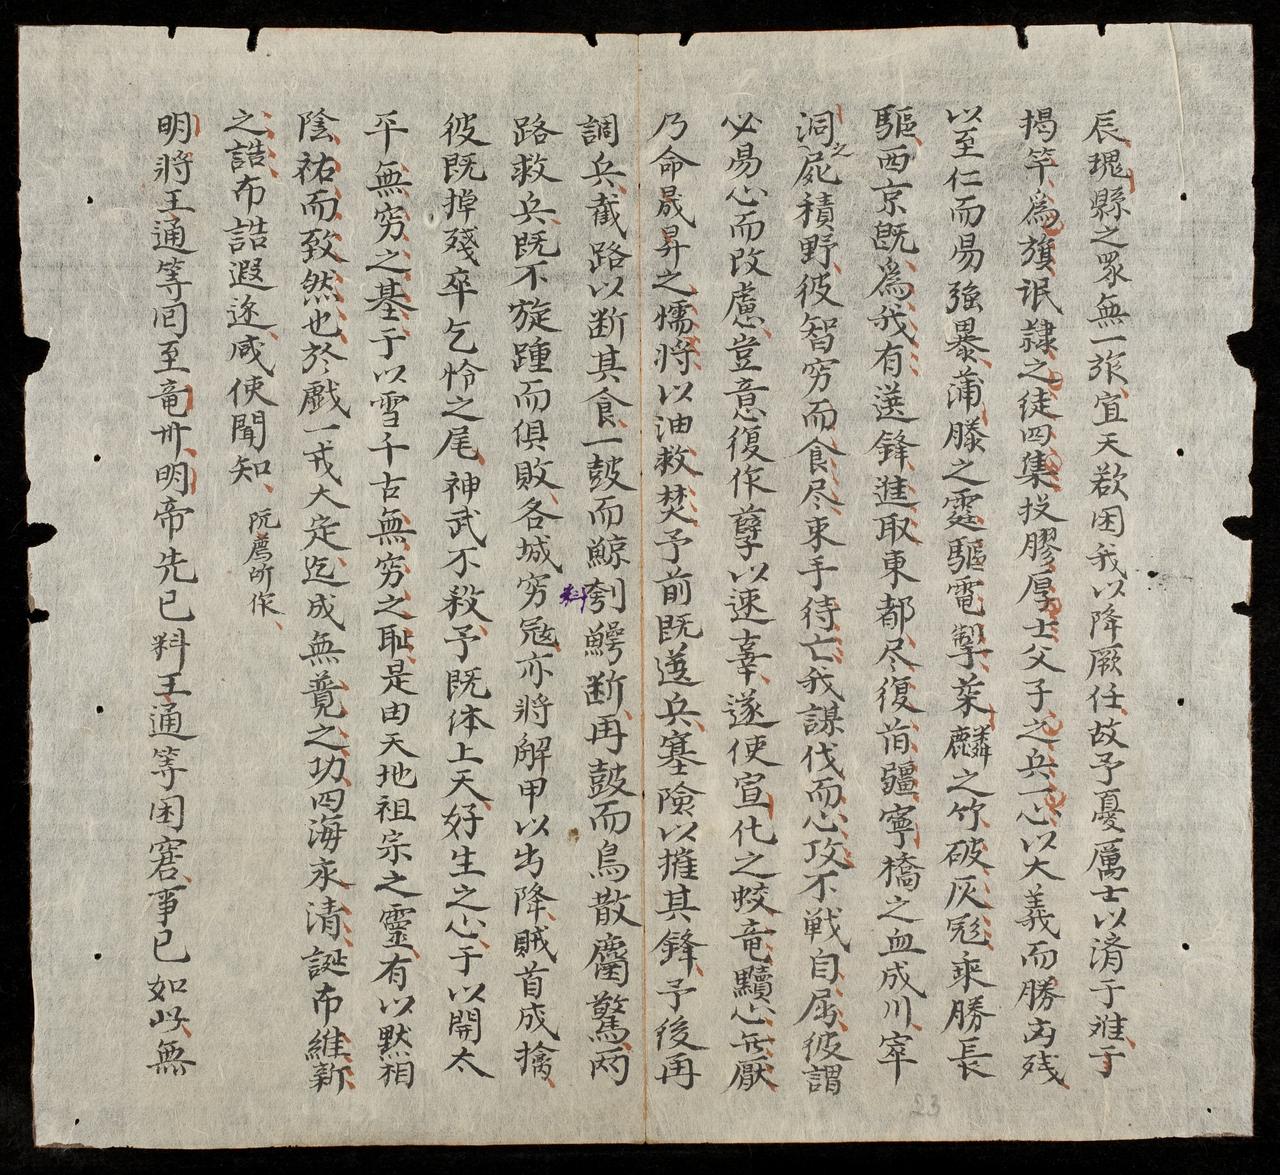 辰瑰縣之眾無一旅宜天欲困我以降厥任故予憂厲士以済于难于
揭竿爲旗氓隷之徒四集投膠厚士父子之兵一心以大義而勝凶残
以至仁而易强暴蒲縢之霆驅電掣茶麟之竹破灰彪乘勝長
驅西京既爲我有選鋒進取東都尽復前疆寧橋之血成川窣
洞之屍積野彼智穷而食尽束手待亡我謀伐而心攻不戦自屈彼謂
必易心而改慮豈意復作孽以速辜遂使宣化之蛟竜黷心無厭
乃命晟昇之懦将以油救焚予前既選兵塞險以摧其鋒予後再
調兵截路以断其食一鼓而鯨刳鱷断再鼓而鳥散麕驚两
料
路救兵既不旋踵而俱敗各城穷寇亦將解甲以出降賊首成擒
彼既掉殘卒乞怜之尾神武不殺予既体上天好生之心于以開太
平無穷之基于以雪千古無穷之恥是由天地祖宗之靈有以黙相
陰祐而致然也於戲一戎大定迄成無競之功四海永清誕布維新
之誥布誥遐迩咸使聞知 阮廌所作
明將王通等囘至竜州明帝先已料王通等困窘事已如此無
23